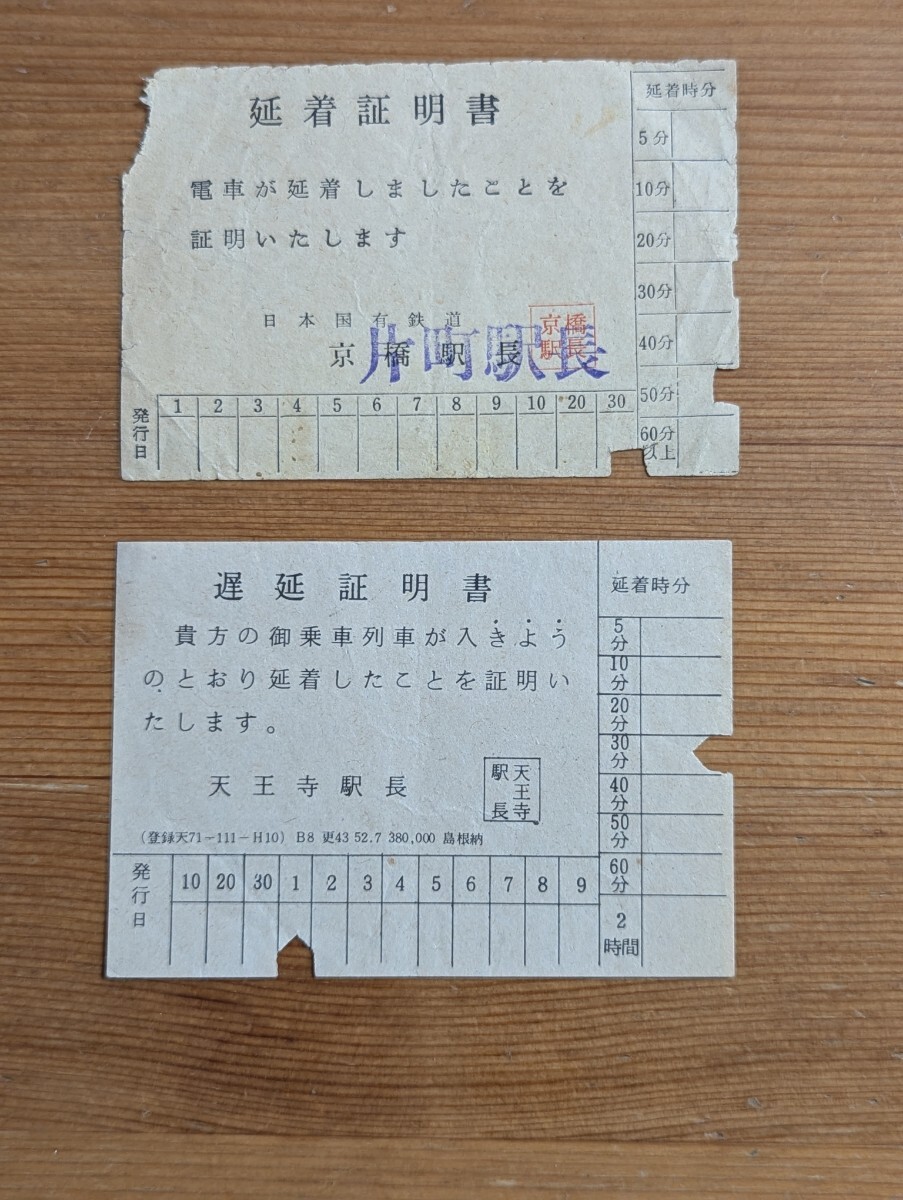 延着証明書
電車が延着しましたことを
証明いたします
日本国有鉄道
京橋駅長
京橋駅長
片町駅長
発行日 1 2 3 4 5 6 7 8 9 10 20 30
延着時分
5分
10分
20分
30分
40分
50分
60分以上
遅延証明書
貴方の御乗車列車が入きよう
のとおり延着したことを証明い
たします。
天王寺駅長
天王寺駅長
(登録天71-111-H10) B8 更43 52.7 380,000 島根納
発行日 10 20 30 1 2 3 4 5 6 7 8 9
延着時分
5分
10分
20分
30分
40分
50分
60分
2時間